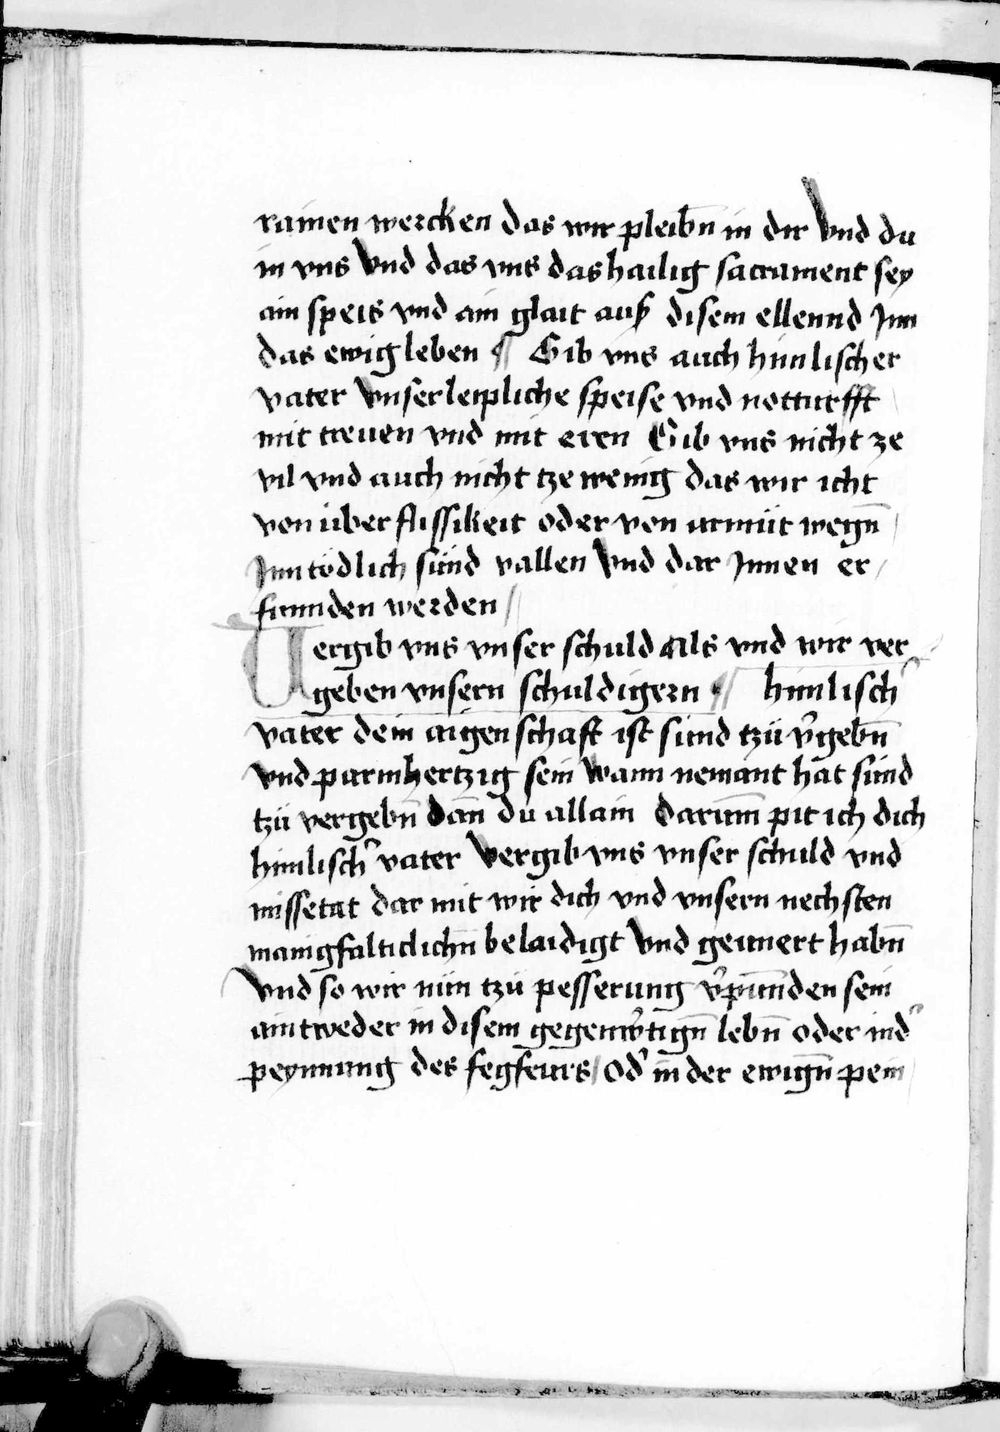 rainen wercken das wir pleibn̄ in dir Vnd du
in vns Vnd das vns das hailig sacrament sey
ain speis vnd ain glait auß disem ellennd Jnn
das ewig leben ¶ Gib vns auch himlischer
vater Vnser leipliche speise vnd notturfft
mit treuen vnd mit eren Gib vns nicht ze
vil vnd auch nicht tze wenig das wir icht
von überflissikeit oder von armüt wegn̄
Jnn tödlich sünd vallen Vnd dar Jnnen er/
funnden werden
Uergib vns vnser schuld als vnd wir ver
geben vnsern schuldigern ¶ himlisch᷑
vater dein aigenschaft ist sünd tzü v᷑gebn̄
vnd parmhertzig sein wann nemant hat sünd
tzü vergebn̄ dan̄ du allain darum̄ pit ich dich
himlisch᷑ vater Vergib vns vnser schuld vnd
missetat dar mit wir dich vnd vnsern nechsten
manigfalticlichn̄ belaidigt Vnd geunert habn̄
Vnd so wir nün tzü pesserung v᷑pun̄den sein
aintweder in disem gegenw᷑tign̄ lebn̄ oder in d᷑
peynnung des fegfeurs / od᷑ in der ewign̄ pein